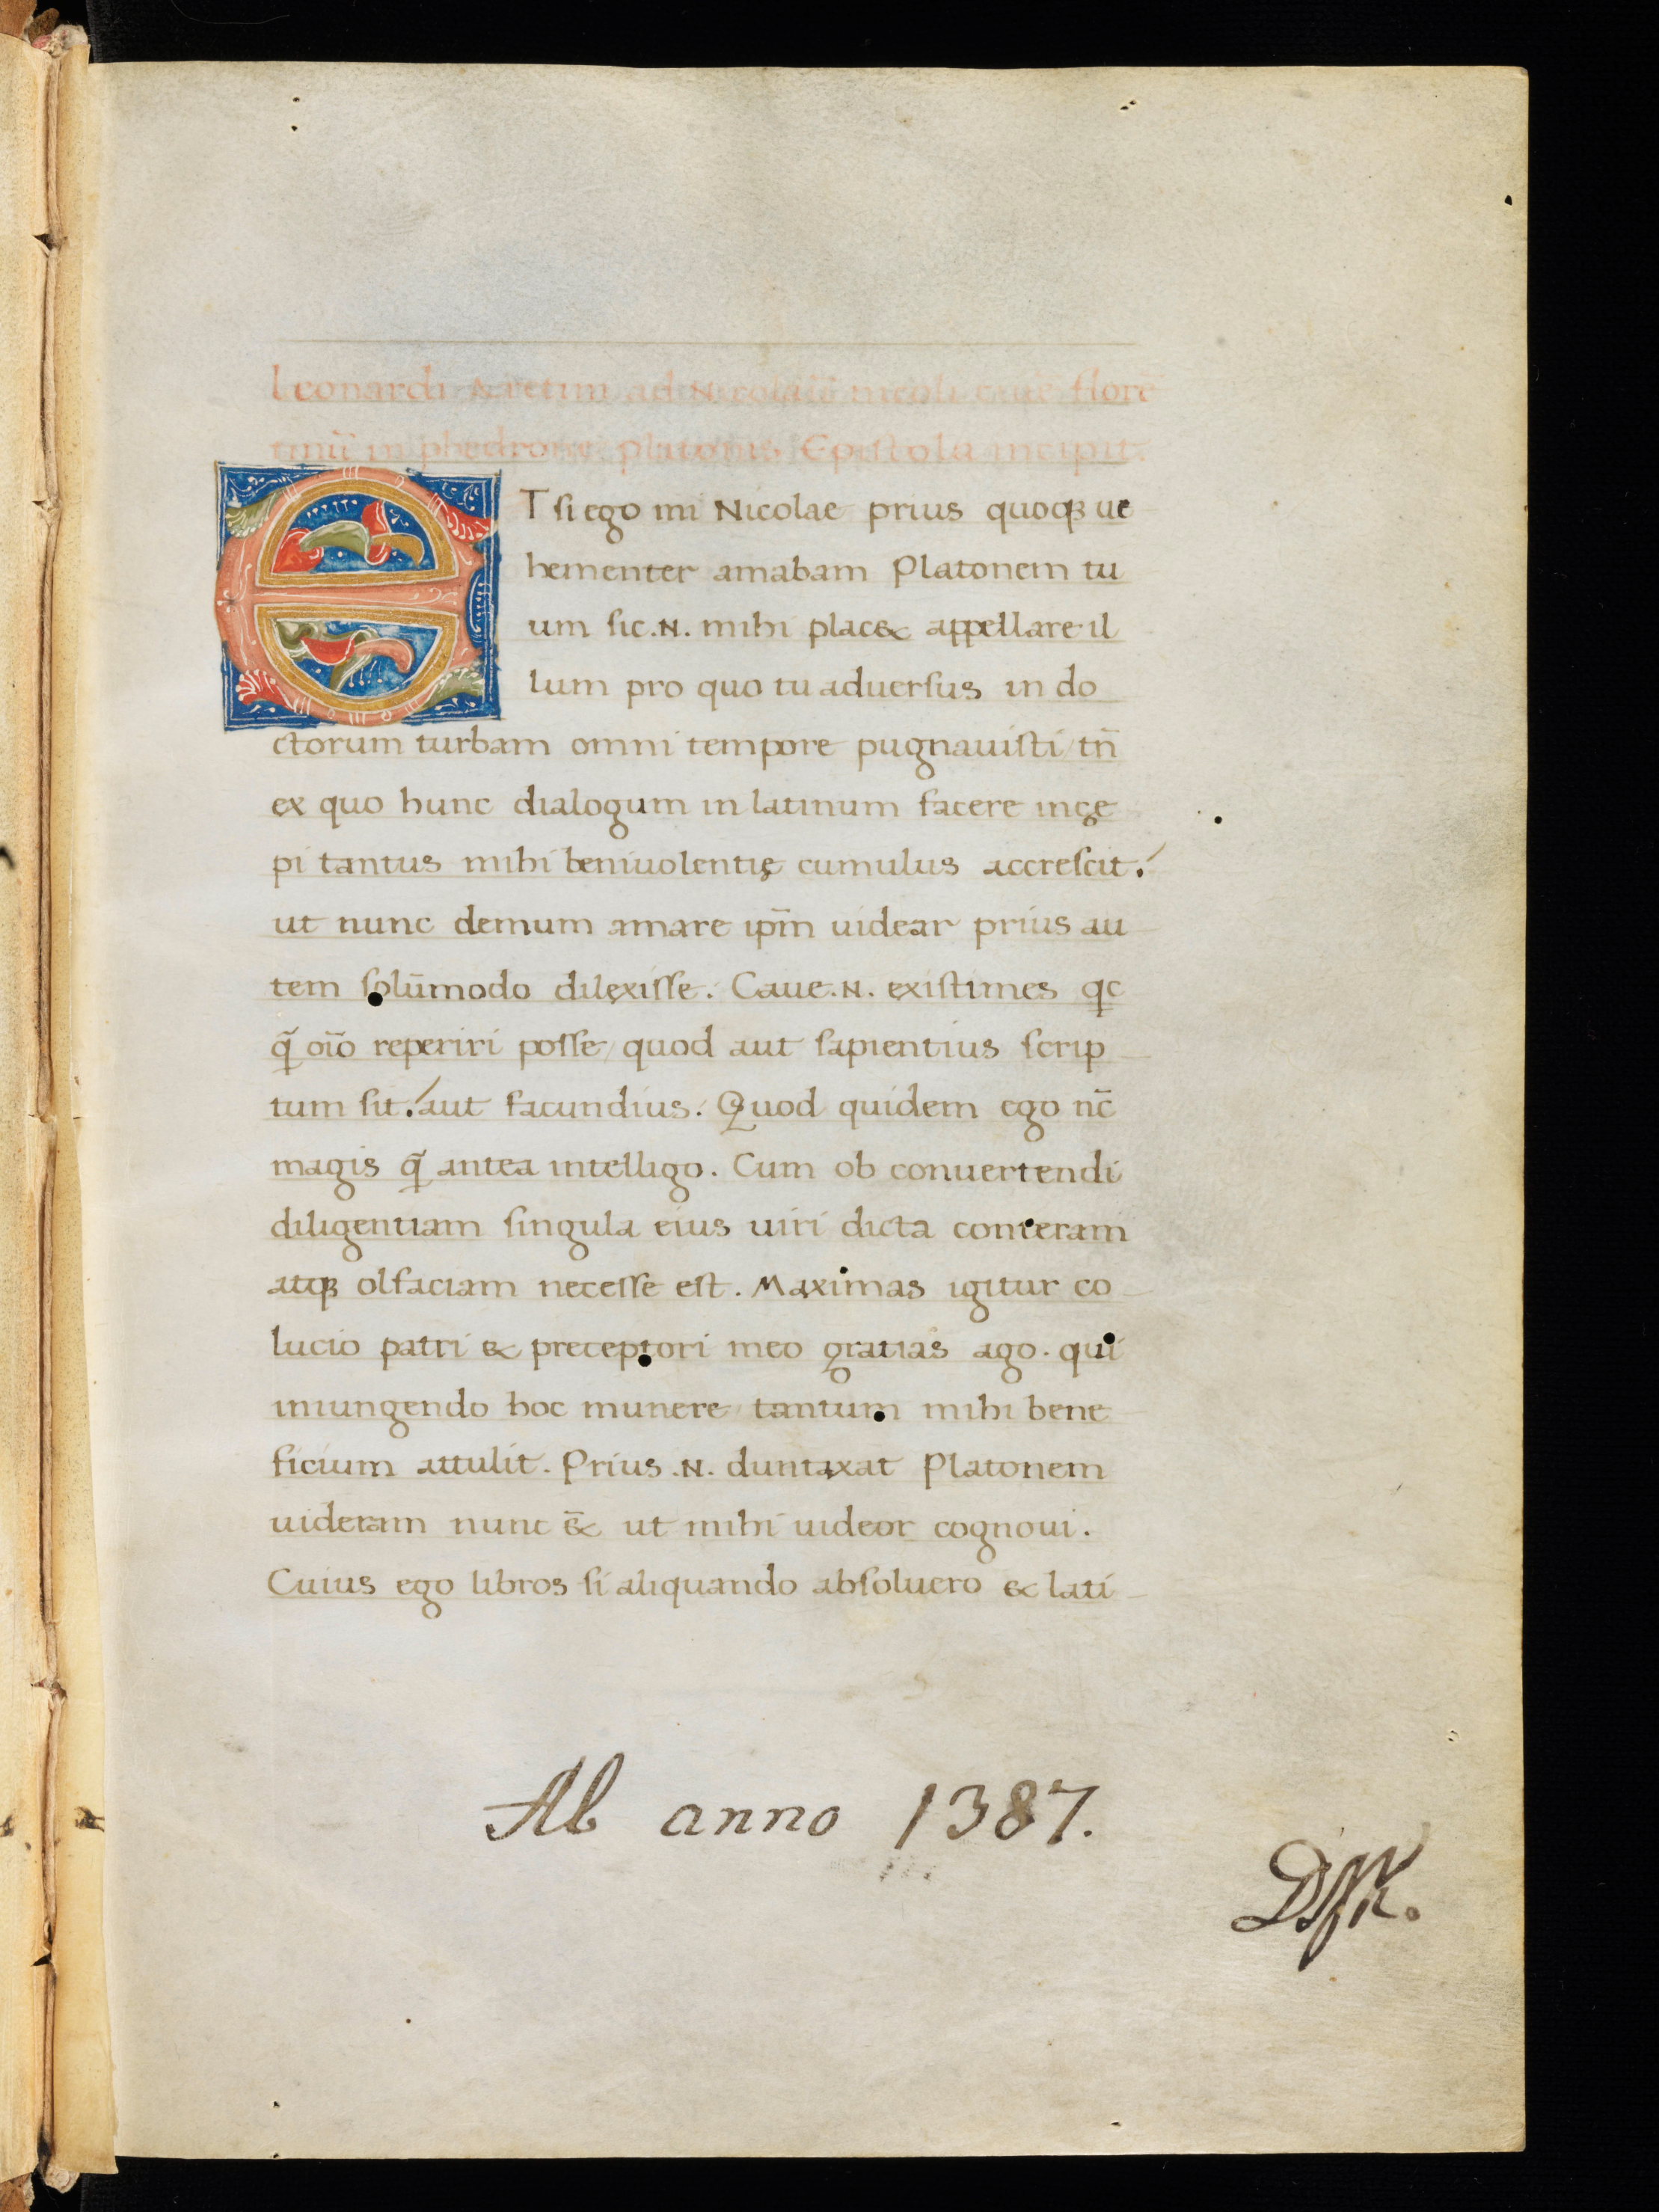 Leonardi Aretini ad Nicolaū nicoli ciuē florē
tinū in phedrone platonis Epistola incipit.
ET si ego mi Nicolae prius quoqꝫ ue
hementer amabam Platonem tu
um sic .N. mihi plac& appellare il
lum pro quo tu aduersus in do
ctorum turbam omni tempore pugnauisti/ tn̄
ex quo hunc dialogum in latinum facere incę
pi tantus mihi beniuolentię cumulus accrescit:
ut nunc demum amare ip̄m uidear prius au
tem solūmodo dilexisse. Caue .N. existimes qc
q̄ oīo reperiri posse/ quod aut sapientius scrip
tum sit: aut facundius. Quod quidem ego nc̄
magis q̄ antea intelligo. Cum ob conuertendi
diligentiam singula eius uiri dicta conteram
atqꝫ olfaciam necesse est. Maximas igitur co
lucio patri & preceptori meo gratias ago. qui
iniungendo hoc munere tantum mihi bene
ficium attulit. Prius .N. duntaxat Platonem
uideram nunc &̄ ut mihi uideor cognoui.
Cuius ego libros si aliquando absoluero & lati
Ab anno 1387.